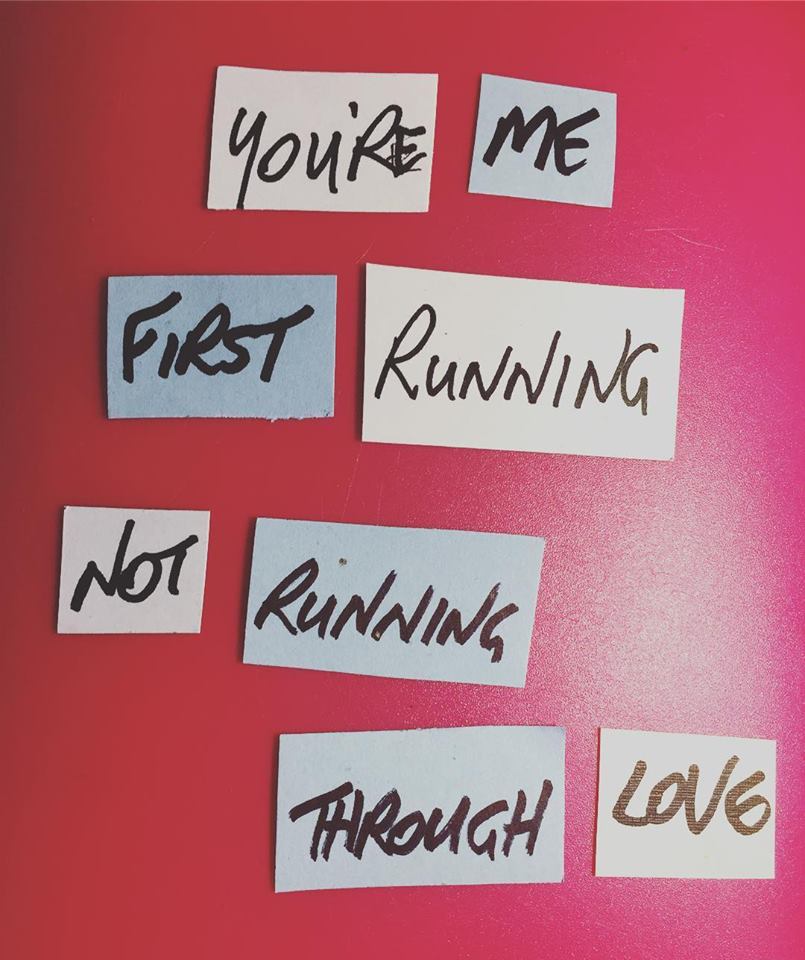 YOU'RE ME
FIRST RUNNING
NOT RUNNING
THROUGH LOVE